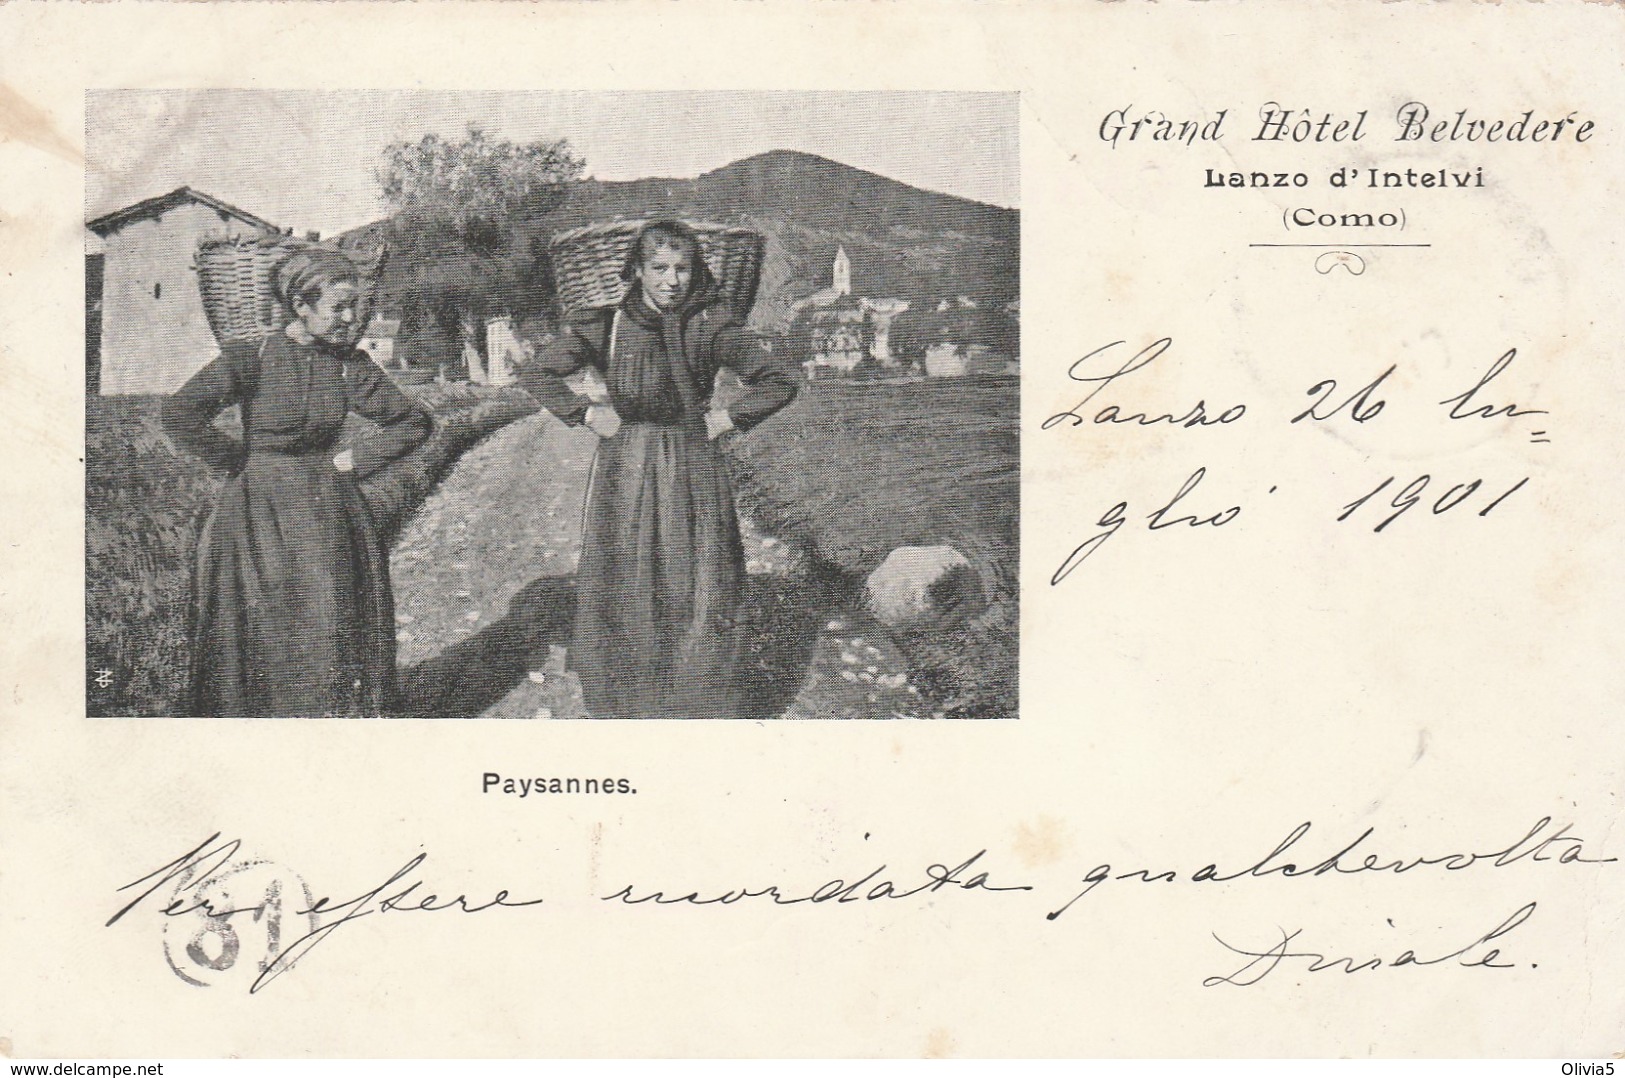 Grand Hôtel Belvedere
Lanzo d'Intelvi
(Como)
Lanzo 26 lu=
glio 1901
Paysannes.
Per essere ricordata qualchevolta
81
www.delcampe.net
Olivia5